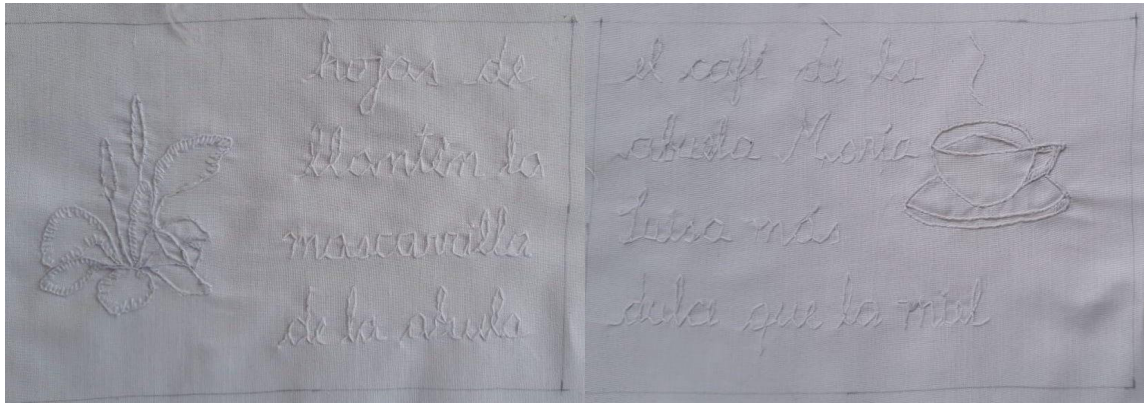 hojas de
llantén la
mascarrilla
de la abuela
el café de la
abuela María
Luisa más
dulce que la miel